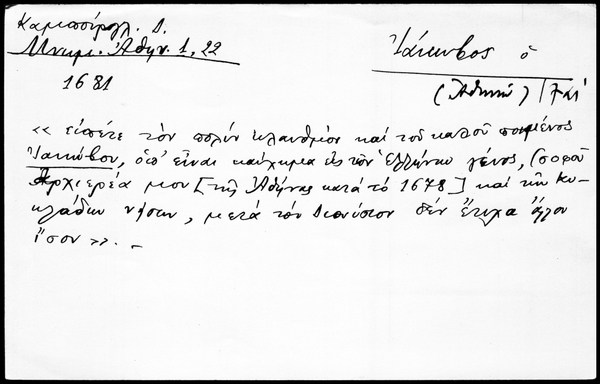 Καμπούρογλ. Δ.
Μνημ. Ἀθην. 1, 22
1681
Ἰάκωβος ὁ
(Ἀθηνῶν)
« εἰπέτε τὸν πολὺν κλαυθμὸν καὶ τοῦ καλοῦ ποιμένος
Ἰακώβου, ὁπ' εἶναι καύχημα εἰς τῶν Ἑλλήνων γένος, (σοφοῦ
Ἀρχιερέα μου [τῆς Ἀθήνας κατὰ τὸ 1678] καὶ τῶν Κυ-
κλάδων νήσων, μετὰ τὸν Διονύσιον δὲν ἔτυχα ἄλλον
ἴσον ». -